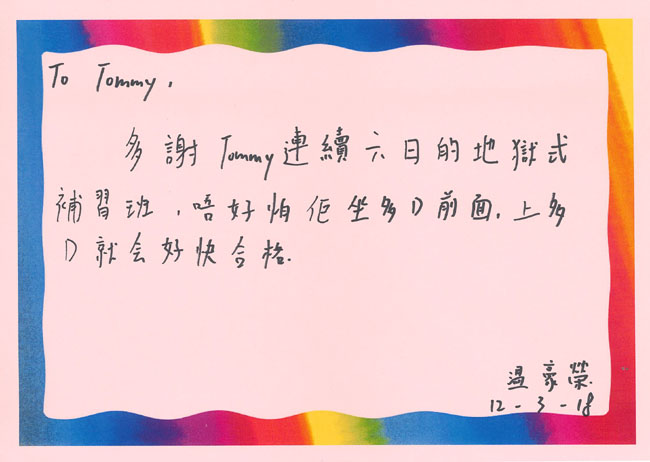 To Tommy,
多謝Tommy連續六日的地獄式
補習班,唔好怕佢坐多D前面,上多
D就会好快合格.
温豪榮
12-3-18